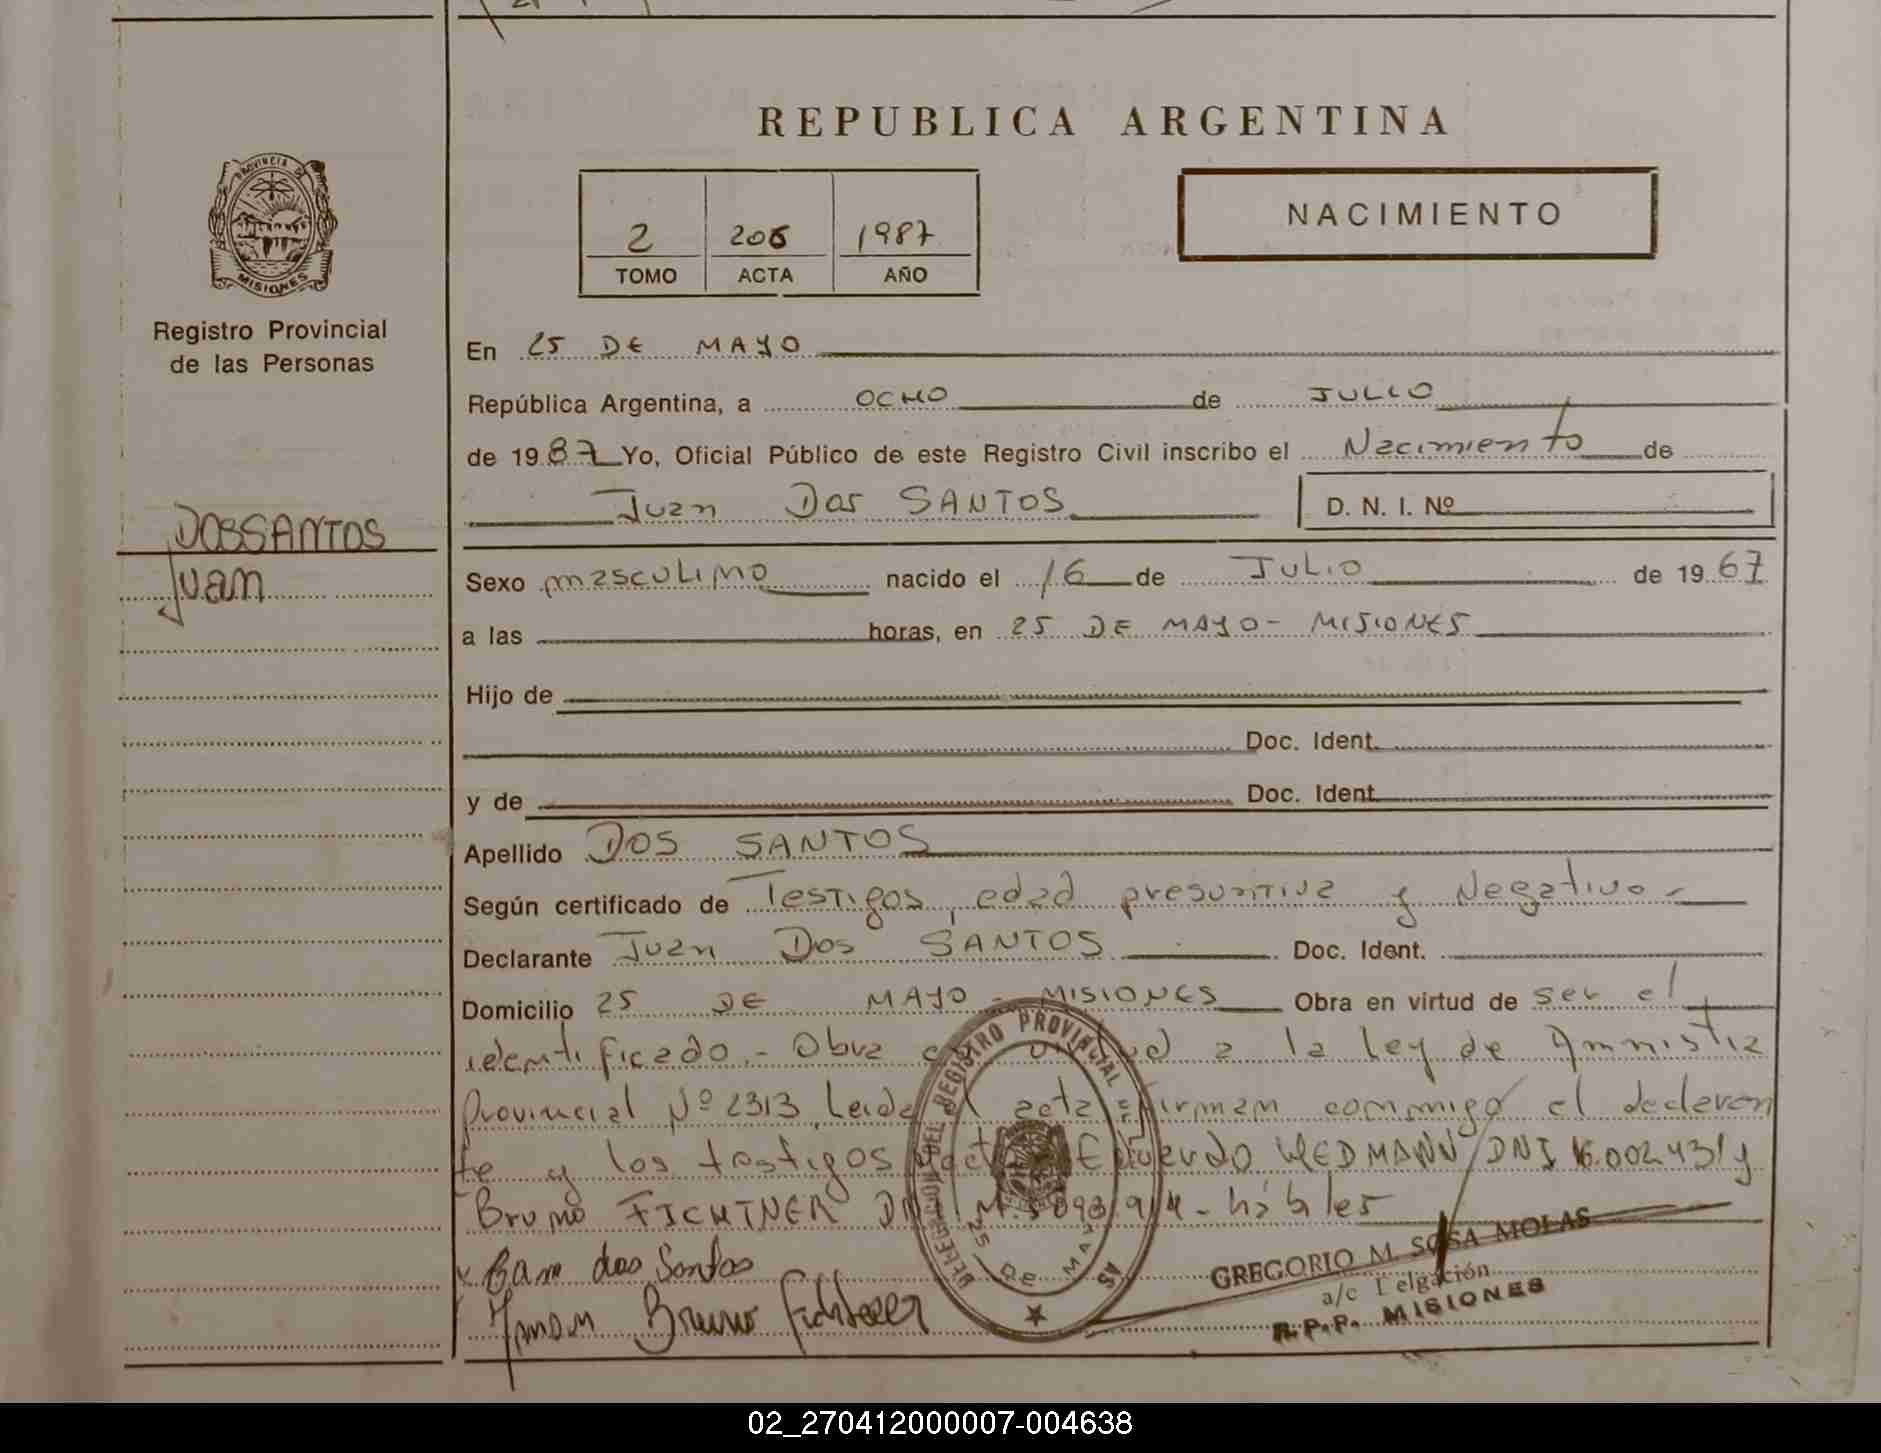 REPUBLICA ARGENTINA
PROVINCIA DE
MISIONES
Registro Provincial
de las Personas
2 206 1987
TOMO ACTA AÑO
NACIMIENTO
En 25 DE MAYO
República Argentina, a OCHO de JULIO
de 1987 Yo, Oficial Público de este Registro Civil inscribo el Nacimiento de
Juan Dos SANTOS D. N. I. Nº
DOSSANTOS
Juan
Sexo masculino nacido el 16 de JULIO de 1967
a las horas, en 25 DE MAYO - MISIONES
Hijo de
Doc. Ident.
y de Doc. Ident.
Apellido DOS SANTOS
Según certificado de Testigos, edad presuntiva y Negativo.-
Declarante Juan Dos SANTOS Doc. Ident.
Domicilio 25 DE MAYO - MISIONES Obra en virtud de ser el
identificado.- Obra en virtud a la Ley de Amnistia
Provincial Nº 2313 Leida el acta firman conmigo el declaran
te y los testigos Eduardo WEDMANN DNI 16.002431 y
Bruno FICHTNER - hábiles
DELEGACION DEL REGISTRO PROVINCIAL
25 DE MAYO
x dos Santos
Bruno
GREGORIO M. SOSA MOLAS
a/c Delgación
R.P.P. MISIONES
02_270412000007-004638